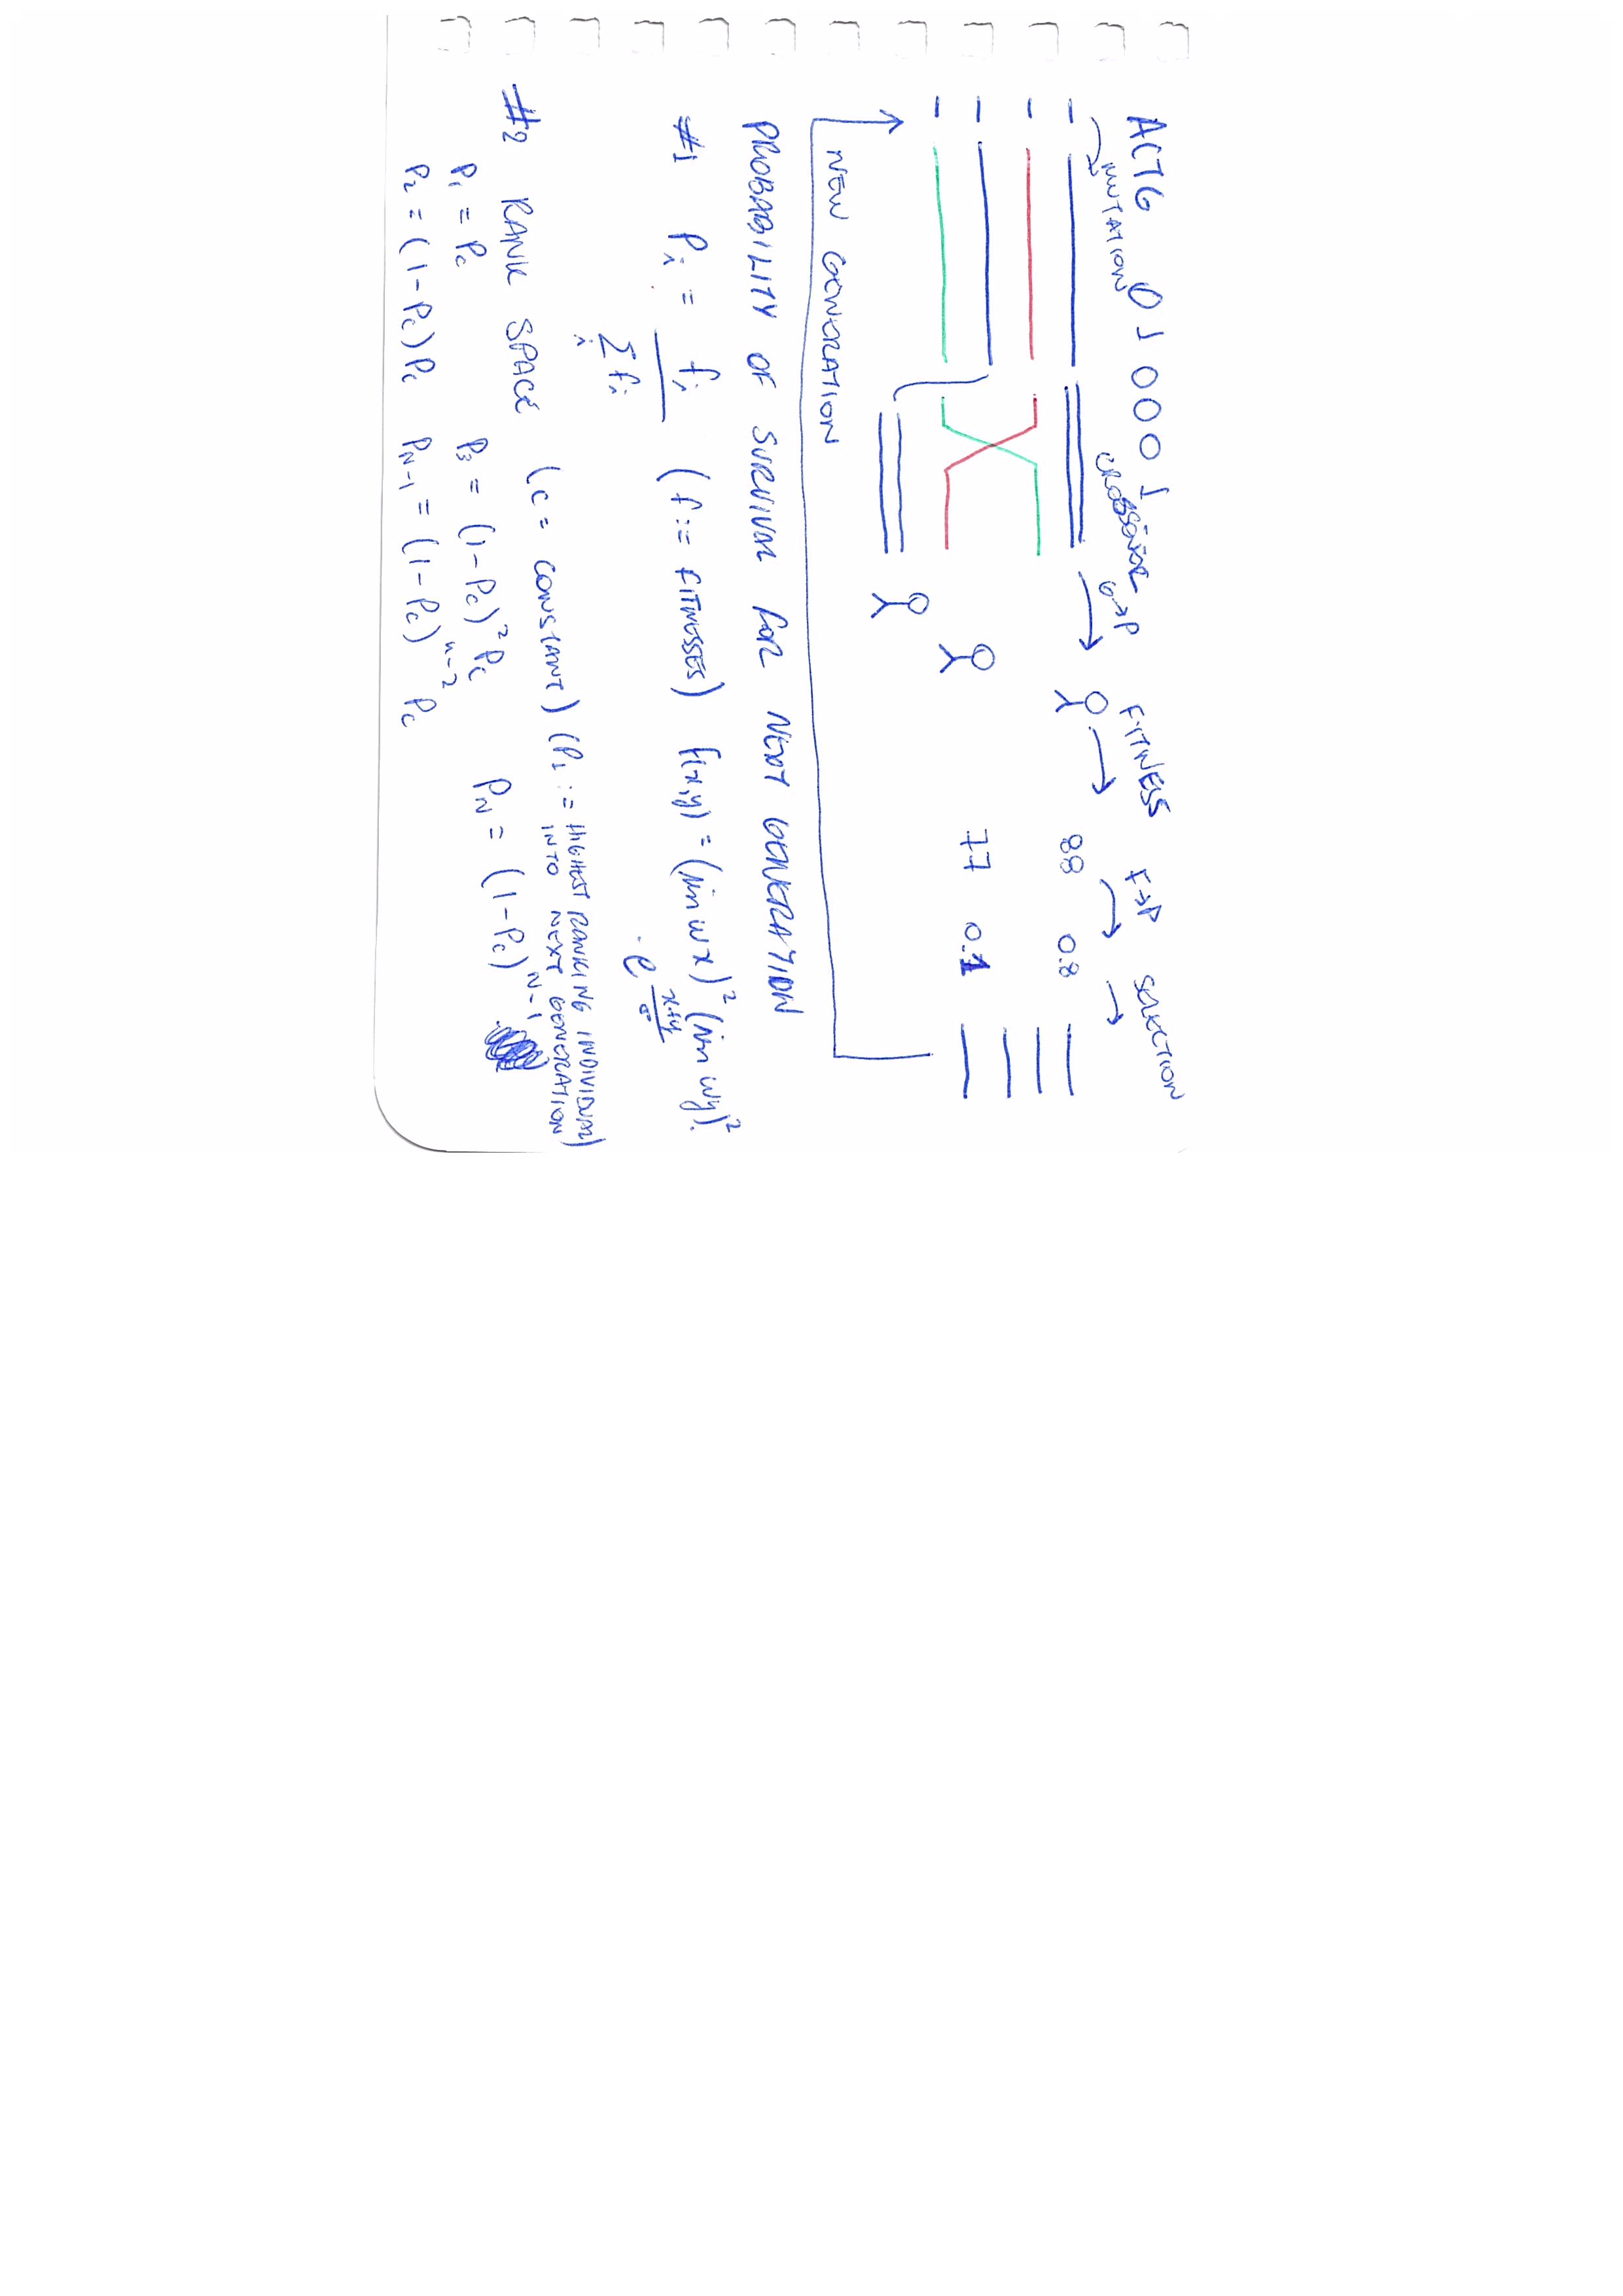 ACTG 0 1 0 0 0 1
MUTATION CROSSOVER G→P FITNESS F→P SELECTION
88 0.8
77 0.1
NEW GENERATION
PROBABILITY OF SURVIVAL FOR NEXT GENERATION
#1 Pᵢ = fᵢ / Σᵢ fᵢ (f := FITNESSES) f(x,y) = (sin wx)² (sin wy)² ·
· e^((x+y)/σ)
#2 RANK SPACE (C = CONSTANT) (P₁ := HIGHEST RANKING INDIVIDUAL
INTO NEXT GENERATION)
P₁ = Pc P₃ = (1-Pc)² Pc P_N = (1-Pc)^(N-1)
P₂ = (1-Pc) Pc P_N-1 = (1-Pc)^(n-2) Pc